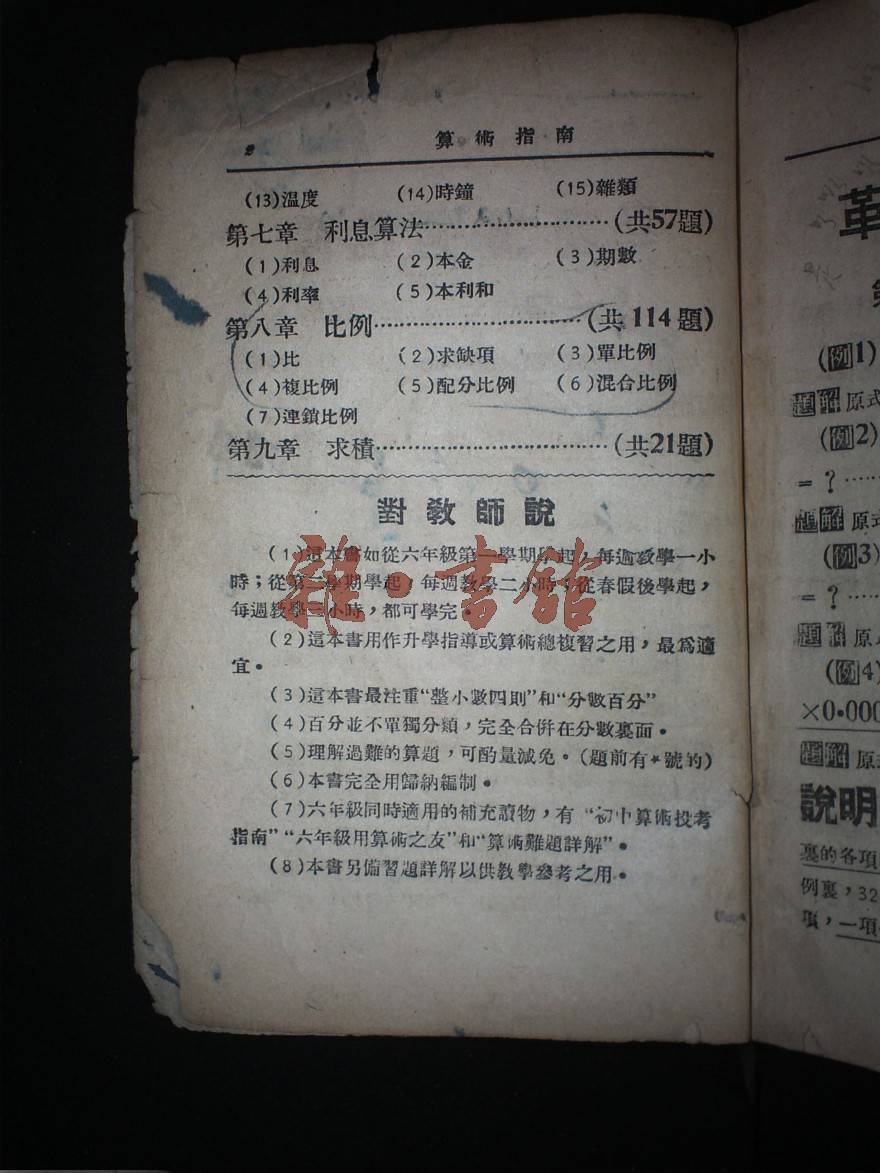 2 算術指南
(13)温度 (14)時鐘 (15)雜類
第七章 利息算法……………………(共57題)
(1)利息 (2)本金 (3)期數
(4)利率 (5)本利和
第八章 比例……………………(共114題)
(1)比 (2)求缺項 (3)單比例
(4)複比例 (5)配分比例 (6)混合比例
(7)連鎖比例
第九章 求積……………………(共21題)
對教師說
(1)這本書如從六年級第一學期學起，每週教學一小
時；從第二學期學起，每週教學二小時；從春假後學起，
每週教學三小時，都可學完。
(2)這本書用作升學指導或算術總複習之用，最爲適
宜。
(3)這本書最注重“整小數四則”和“分數百分”
(4)百分並不單獨分類，完全合併在分數裏面。
(5)理解過難的算題，可酌量減免。(題前有★號的)
(6)本書完全用歸納編制。
(7)六年級同時適用的補充讀物，有“初中算術投考
指南”“六年級用算術之友”和“算術難題詳解”。
(8)本書另備習題詳解以供教學參考之用。
雜·書館
革
(例1)
題解 原式
(例2)
=？……
題解 原式
(例3)
=？……
題解 原
(例4)
×0·000
題解 原
說明
裏的各項
例裏，32
項，一項